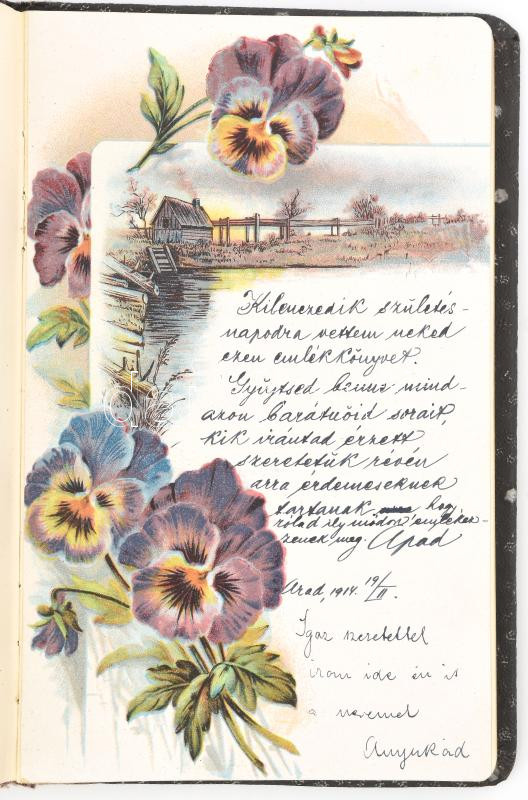 Kilenczedik születés-
napodra vettem neked
ezen emlékkönyvet.
Gyűjtsed benne mind-
azon barátnőid sorait,
kik irántad érzett
szeretetük révén
arra érdemeseknek
tartanak hogy
rólad ily módon emlékez-
zenek meg. Apád
Arad, 1914. 19/II.
Igaz szeretettel
irom ide én is
a nevemet
Anyukád